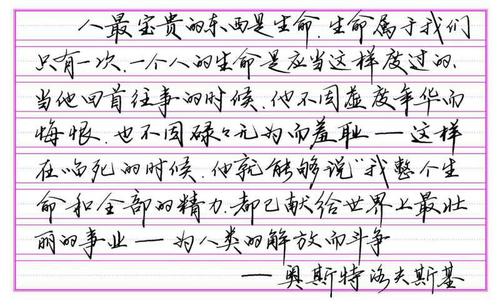 人最宝贵的东西是生命.生命属于我们
只有一次.一个人的生命是应当这样度过的.
当他回首往事的时候.他不因虚度年华而
悔恨.也不因碌々无为而羞耻——这样
在临死的时候.他就能够说“我整个生
命和全部的精力.都已献给世界上最壮
丽的事业——为人类的解放而斗争
——奥斯特洛夫斯基